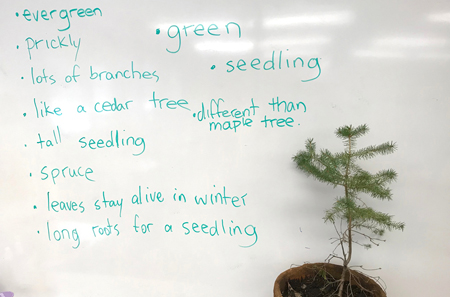 • evergreen
• prickly
• lots of branches
• like a cedar tree
• tall seedling
• spruce
• leaves stay alive in winter
• long roots for a seedling
• green
• seedling
• different than
maple tree.